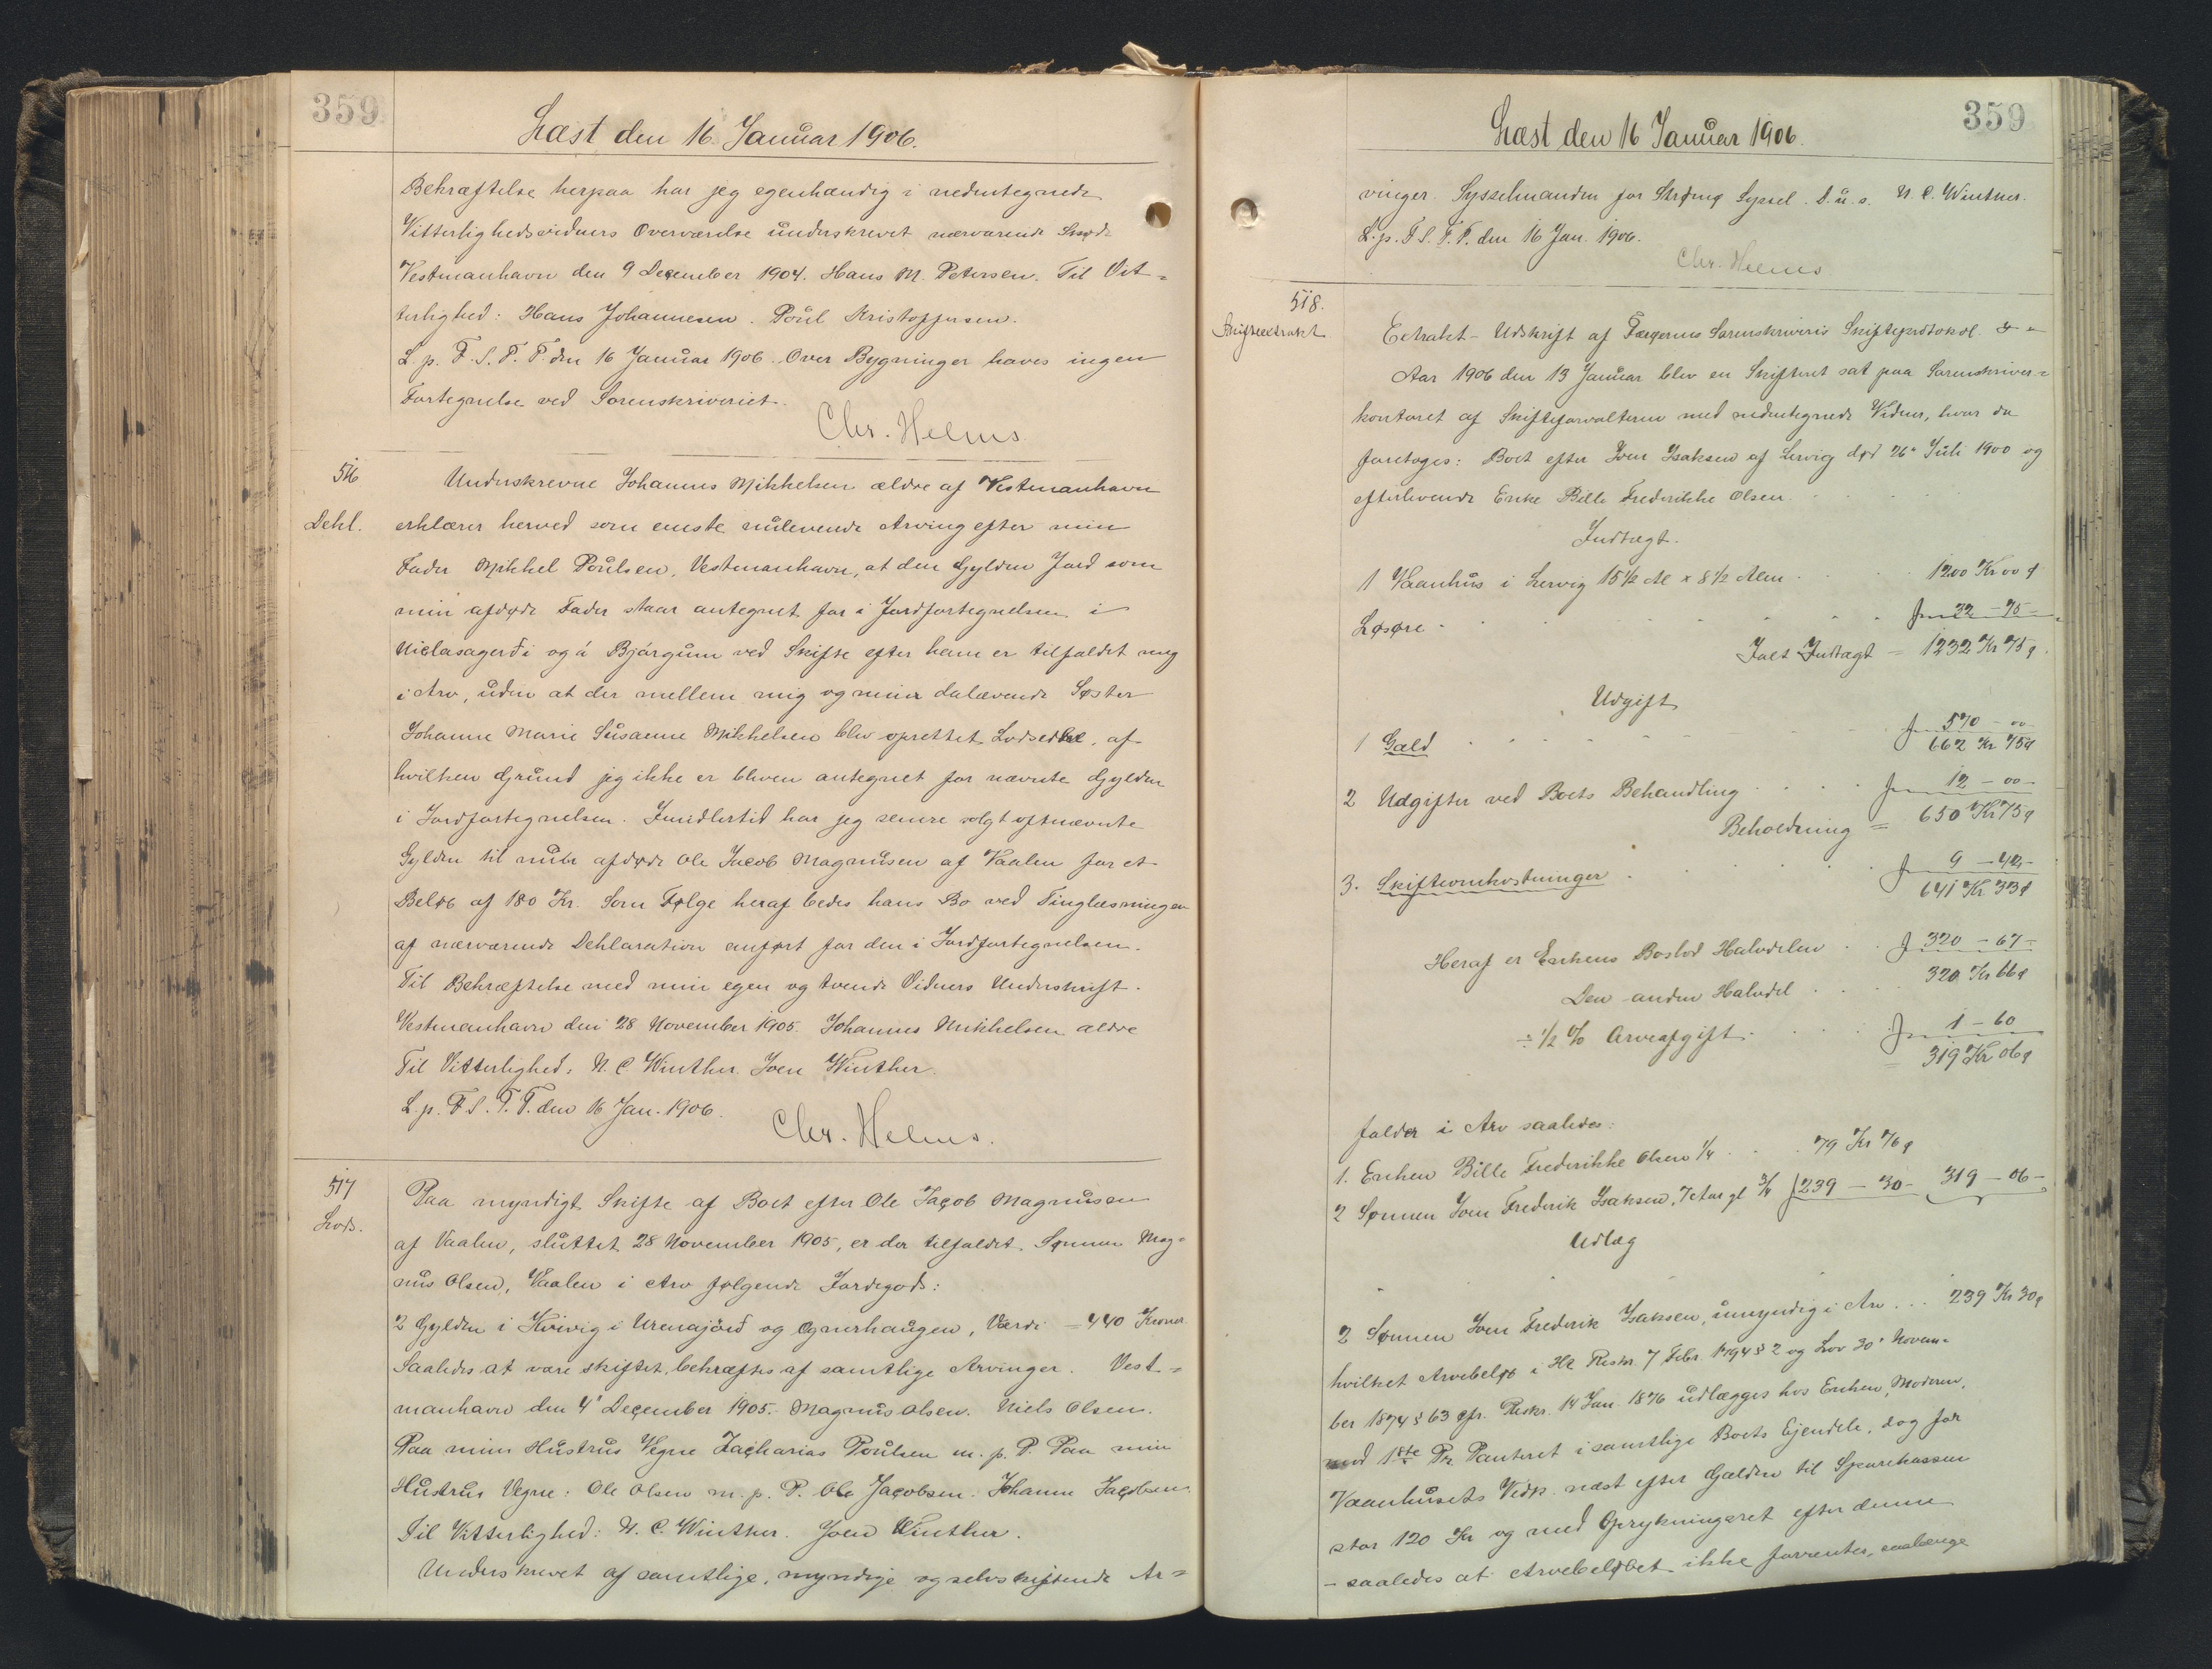 359
Læst den 16 Januar 1906.
Bekræftelse herpaa har jeg egenhændig i nedentegnede
Vitterlighedsvidners Overværelse underskrevet nærværende Skøde
Vestmanhavn den 9 December 1904. Hans M. Petersen. Til Vit=
terlighed: Hans Johannesen. Poul Kristoffersen.
L. p. F. S. T. P. den 16 Januar 1906. Over Bygninger haves ingen
Fortegnelse ved Sorenskriveriet.
Chr. Helms
516
Dekl.
Underskrevne Johannes Mikkelsen ældre af Vestmanhavn
erklærer herved som eneste nulevende Arving efter min
Fader Mikkel Poulsen, Vestmanhavn, at den Gylden Jord som
min afdøde Fader staar antegnet for i Jordfortegnelsen i
Niclasagerði og á Bjørgum ved Skifte efter ham er tilfaldet mig
i Arv, uden at der mellem mig og min dalevende Søster
Johanne Marie Susanne Mikkelsen blev oprettet Lodseddel, af
hvilken Grund jeg ikke er bleven antegnet for nævnte Gylden
i Jordfortegnelsen. Imidlertid har jeg senere solgt oftnævnte
Gylden til nule afdøde Ole Jacob Magnusen af Vaalen for et
Beløb af 180 Kr. Som Følge heraf bedes hans Bo ved Tinglæsningen
af nærværende Deklaration anført for den i Jordfortegnelsen.
Til Bekræftelse med min egen og tvende Vidners Underskrift.
Vestmanhavn den 28 November 1905. Johannes Mikkelsen ældre
Til Vitterlighed: N. C Winther. Joen Winther.
L. p. F. S. T. P. den 16 Jan. 1906.
Chr. Helms.
517
Lods.
Paa myndigt Skifte af Boet efter Ole Jacob Magnusen
af Vaalen, sluttet 28 November 1905, er der tilfaldet Sønnen Mag=
nus Olsen, Vaalen i Arv følgende Jordegods:
2 Gylden i Kvivig i Urenajørd og Ognerhaugen, Værdi = 440 Kroner
Saaledes at være skiftet, bekræftes af samtlige Arvinger. Vest=
manhavn den 4' December 1905. Magnus Olsen. Niels Olsen.
Paa min Hustrus Vegne Zacharias Poulsen m. p. P. Paa min
Hustrus Vegne: Ole Olsen m. p. P. Ole Jacobsen. Johanne Jacobsen
Til Vitterlighed: N. C. Winther. Joen Winther.
Underskrevet af samtlige, myndige og selvskiftende Ar=
359
Læst den 16 Januar 1906.
vinger. Sysselmanden for Strømø Syssel. D. u. s. N. C. Winther.
L. p. F S. T. P. den 16 Jan. 1906.
Chr. Helms
518.
Skifteextrakt
Extrakt-Udskrift af Færøernes Sorenskriveris Skifteprotokol
Aar 1906 den 13 Januar blev en Skifteret sat paa Sorenskriver=
kontoret af Skifteforvalteren med nedentegnede Vidner, hvor da
foretoges: Boet efter Joen Isaksen af Lervig død 26' Juli 1900 og
efterlevende Enke Bille Frederikke Olsen
Indtægt.
1 Vaanhus i Lervig 15 1/2 Al x 8 1/2 Alen . . 1200 Kr 00 ø
Løsøre . . . . 32 - 75 -
Ialt Indtægt = 1232 Kr 75 ø.
Udgift
1 Gæld . . . . 570 - 00
662 Kr 75 ø
2 Udgifter ved Boets Behandling . . . 12 - 00
Beholdning = 650 Kr 75 ø
3. Skifteomkostninger . . . 9 - 42 -
641 Kr 33 ø
Heraf er Enkens Boslod Halvdelen . . 320 - 67 -
Den anden Halvdel . . . 320 Kr 66 ø
÷ 1/2 % Arveafgift . . . 1 - 60
= 319 Kr 06 ø
falder i Arv saaledes:
1. Enken Bille Frederikke Olsen 1/4 . . . 79 Kr 76 ø
2 Sønnen Joen Frederik Isaksen, 7 Aar gl 3/4 239 - 30 - 319 - 06 -
Udlæg
2 Sønnen Joen Frederik Isaksen, umyndig i Arv . . . 239 Kr 30 ø
hvilket Arvebeløb i Hl Reskr. 7 Febr. 1794 § 2 og Lov 30' Novem=
ber 1874 § 63 cfr. Reskr. 14 Jan. 1876 udlægges hos Enken, Moderen,
med 1ste Pr. Panteret i samtlige Boets Ejendele, dog for
Vaanhusets Vedk. næst efter Gælden til Sparekassen
stor 120 Kr og med Oprykningsret efter denne
- saaledes at Arvebeløbet ikke forrentes, saalænge